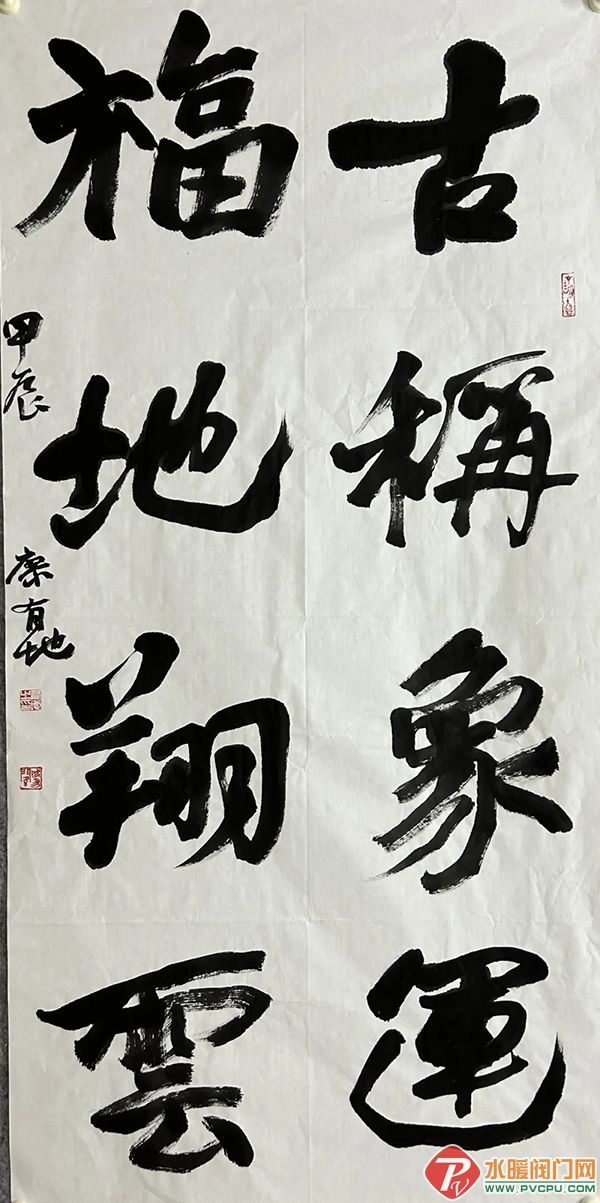 古稱象運
福地翔雲
甲辰 康有地
水暖阀门网
WWW.PVCPU.COM